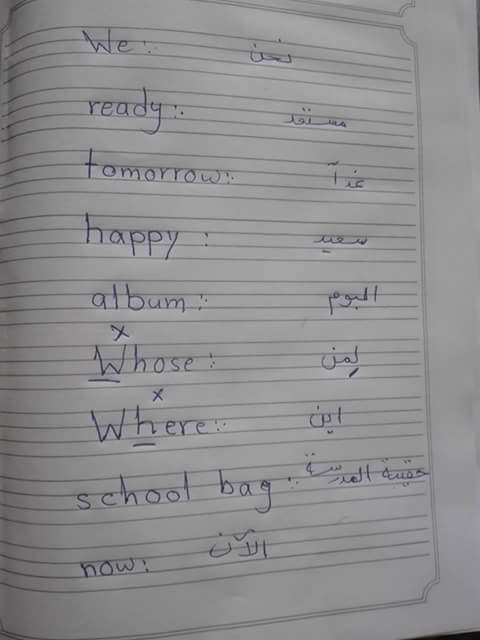 We: نحن
ready: مستعد
tomorrow: غداً
happy: سعيد
album: البوم
x
Whose: لمن
x
Where: اين
school bag: حقيبة المدرسة
now: الآن